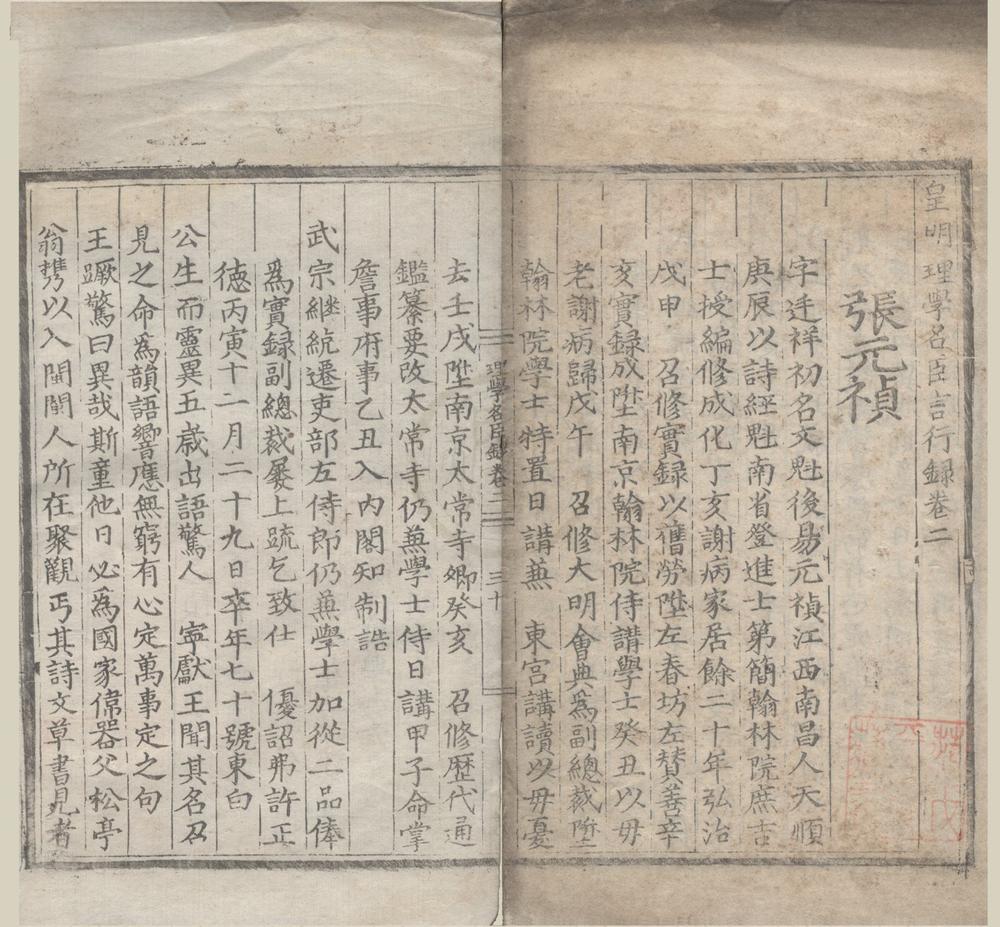 皇明理學名臣言行録卷二
張元禎
字廷祥初名文魁後易元禎江西南昌人天順
庚辰以詩經魁南省登進士第簡翰林院庶吉
士授編修成化丁亥謝病家居餘二十年弘治
戊申　召修實録以舊勞陞左春坊左賛善辛
亥實録成陞南京翰林院侍講學士癸丑以毋
老謝病歸戊午　召修大明會典為副總裁陞
翰林院學士特置日講兼　東宮講讀以毋憂
理學名臣録卷二　三十
去壬戌陞南京太常寺卿癸亥　召修歷代通
鑑纂要改太常寺仍兼學士侍日講甲子命掌
詹事府事乙丑入内閣知制誥
武宗継統遷吏部左侍郎仍兼學士加從二品俸
爲實録副總裁屢上疏乞致仕　優詔弗許正
徳丙寅十二月二十九日卒年七十號東白
公生而靈異五歳出語驚人　寧獻王聞其名召
見之命為韻語響應無窮有心定萬事定之句
王蹶驚曰異哉斯童他日必爲國家偉器父松亭
翁携以入閩閩人所在聚觀丐其詩文草書見者